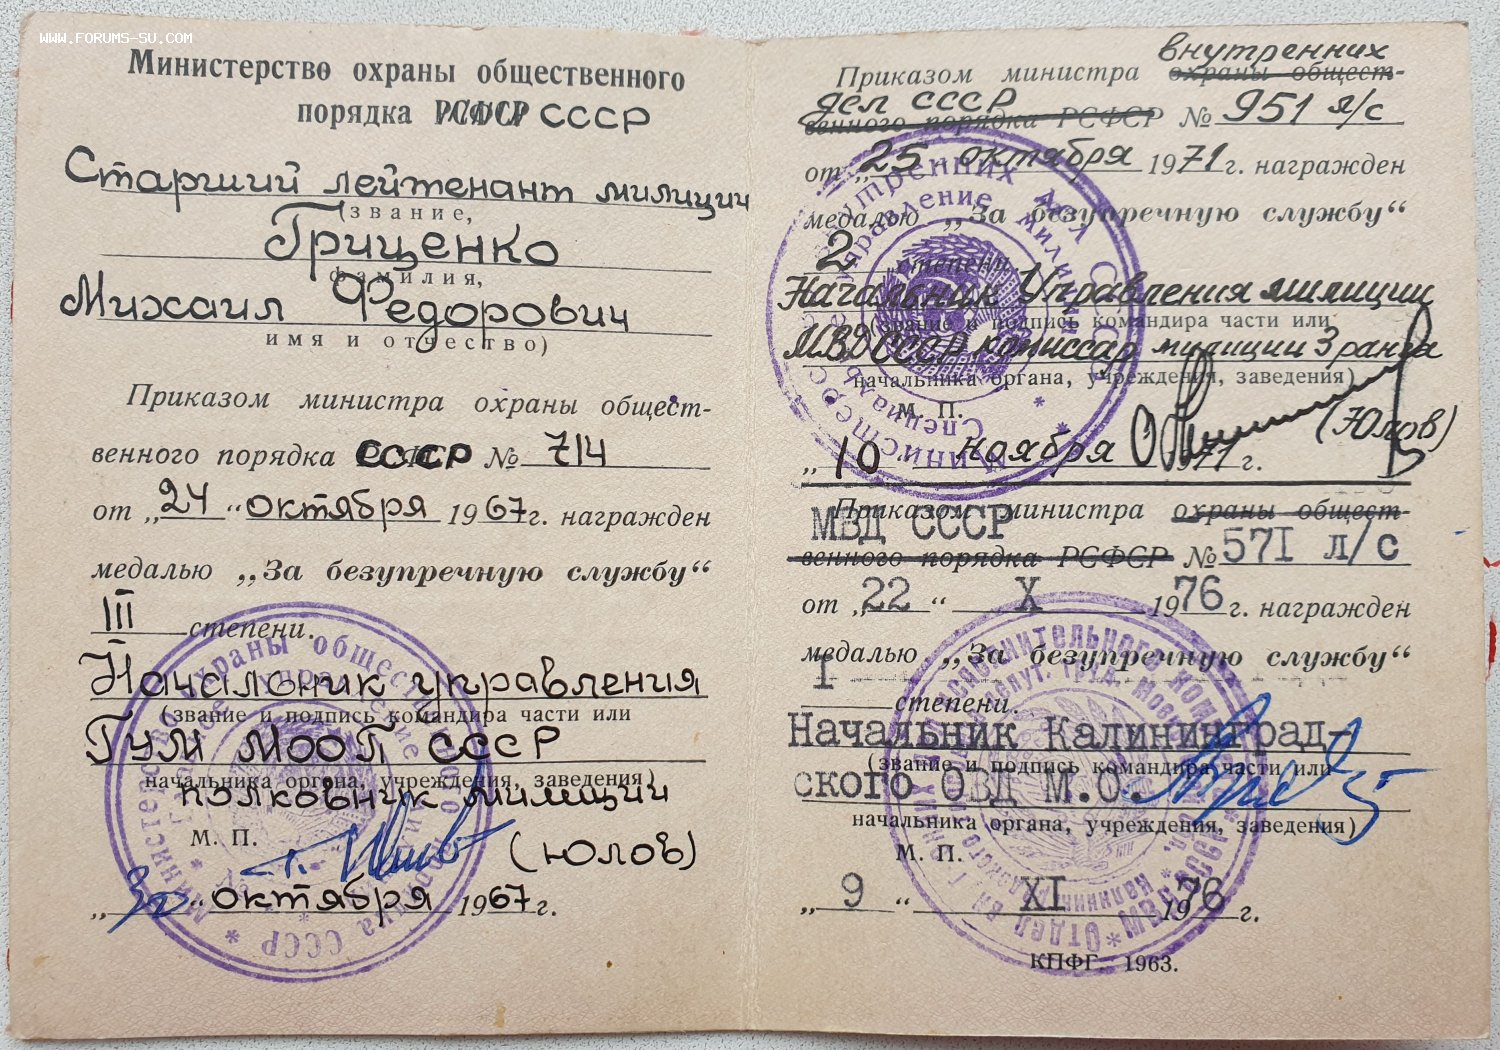 www.forums-su.com
Министерство охраны общественного
порядка РСФСР СССР
Старший лейтенант милиции
(звание,
Гриценко
фамилия,
Михаил Федорович
имя и отчество)
Приказом министра охраны общест-
венного порядка СССР № 714
от „24“ октября 1967г. награжден
медалью „За безупречную службу“
III степени.
Начальник управления
(звание и подпись командира части или
ГУМ МООП СССР
начальника органа, учреждения, заведения)
полковник милиции
М. П.
(Юлов)
„30“ октября 1967г.
внутренних
Приказом министра охраны общест-
дел СССР
венного порядка РСФСР № 951 л/с
от „25“ октября 1971г. награжден
медалью „За безупречную службу“
2 степени.
Начальник Управления милиции
(звание и подпись командира части или
МВД СССР комиссар милиции 3 ранга
начальника органа, учреждения, заведения)
М. П.
(Юлов)
„10 ноября 1971г.
Приказом министра охраны общест-
МВД СССР
венного порядка РСФСР № 571 л/с
от „22“ X 1976г. награжден
медалью „За безупречную службу“
I степени.
Начальник Калининград-
(звание и подпись командира части или
ского ОВД М.О.
начальника органа, учреждения, заведения)
М. П.
„9“ XI 1976г.
КПФГ. 1963.